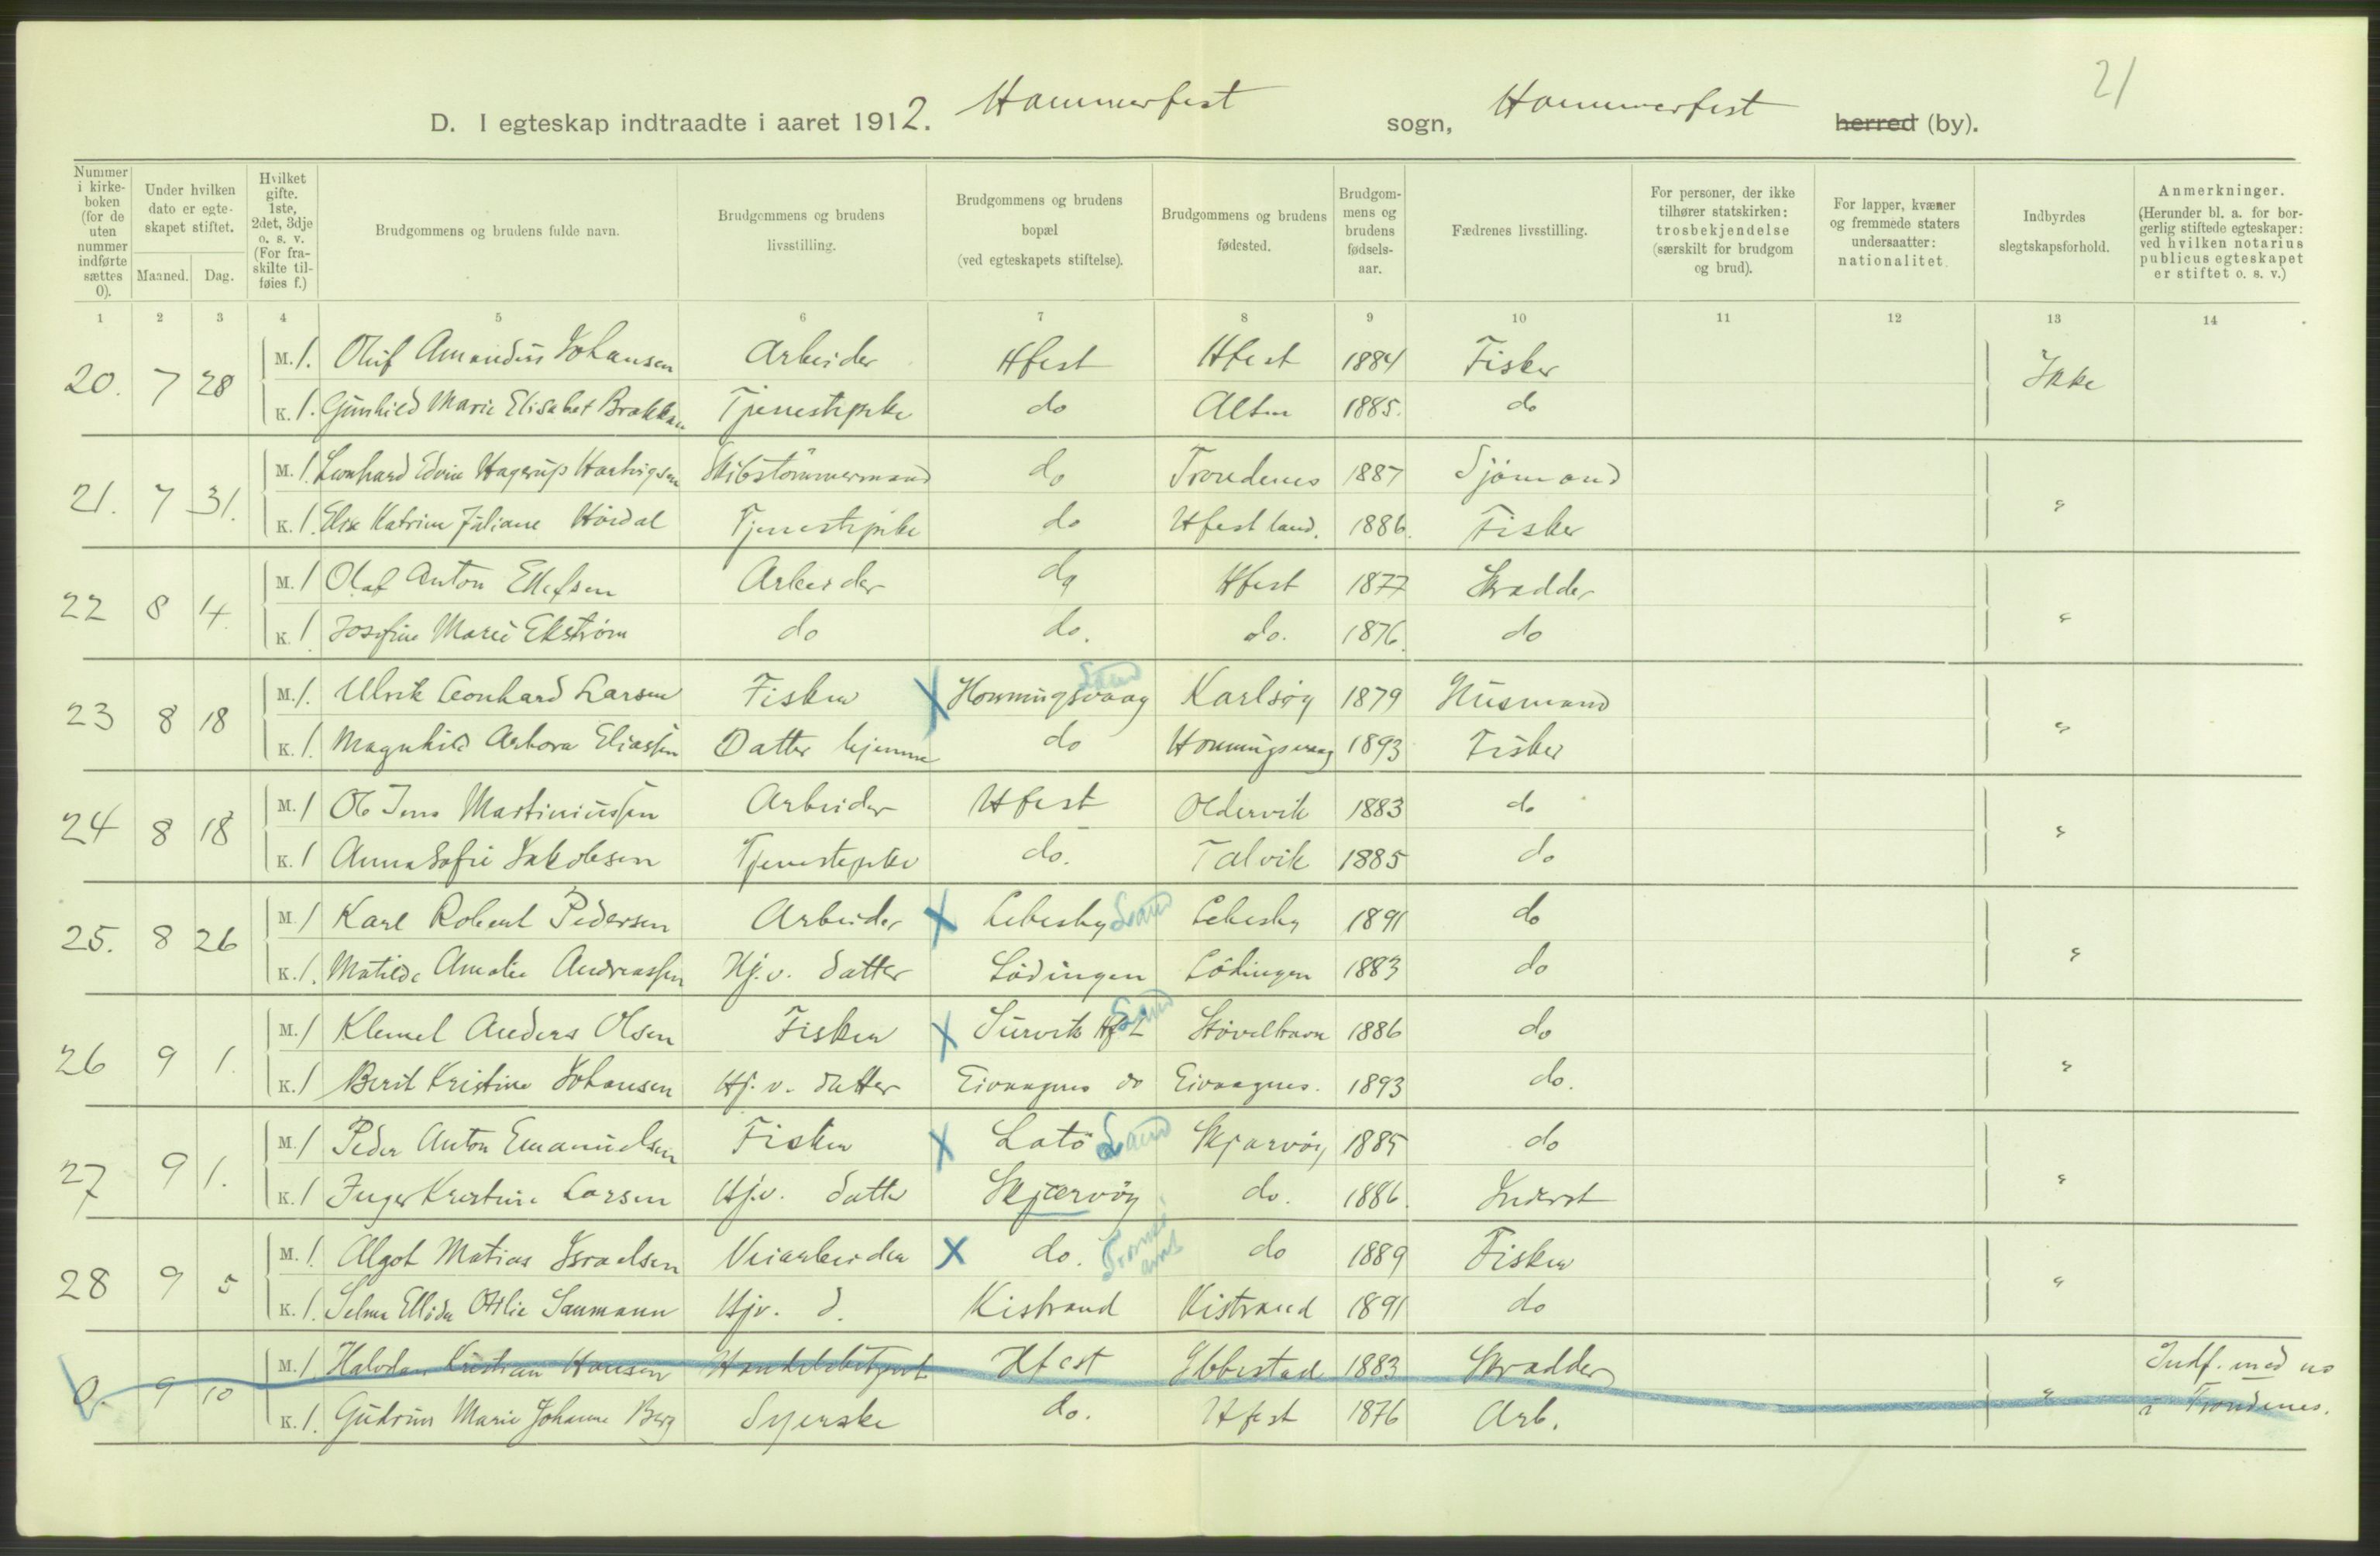 21
D. I egteskap indtraadte i aaret 1912. Hammerfest sogn, Hammerfest herred (by).
Nummer i kirkeboken (for de uten nummer indførte sættes 0).
Under hvilken dato er egteskapet stiftet.
Maaned. Dag.
Hvilket gifte. 1ste, 2det, 3dje o. s. v. (For fraskilte tilføies f.)
Brudgommens og brudens fulde navn.
Brudgommens og brudens livsstilling.
Brudgommens og brudens bopæl (ved egteskapets stiftelse).
Brudgommens og brudens fødested.
Brudgommens og brudens fødselsaar.
Fædrenes livsstilling.
For personer, der ikke tilhører statskirken: trosbekjendelse (særskilt for brudgom og brud).
For lapper, kvæner og fremmede staters undersaatter: nationalitet.
Indbyrdes slegtskapsforhold.
Anmerkninger. (Herunder bl. a. for borgerlig stiftede egteskaper: ved hvilken notarius publicus egteskapet er stiftet o. s. v.)
1 2 3 4 5 6 7 8 9 10 11 12 13 14
20. 7 28 M. 1. Oluf Amandus Johansen Arbeider Hfest Hfest 1884 Fisker Ikke
K. 1. Gunhild Marie Elisabet Brokkan Tjenestepike do Alten 1885. do
21. 7 31. M. 1. Leonhard Edvin Hagerup Hartvigsen Skibstömmermand do Trondenes 1887 Sjömand "
K. 1. Elise Katrine Juliane Hördal Tjenestepike do Hfest land. 1886. Fisker
22 8 4. M. 1 Olaf Anton Ellefsen Arbeider do Hfest 1877 Skradder "
K. 1 Josefine Marie Ekström do do. do. 1876. do
23 8 18 M. 1. Ulrik Leonhard Larsen Fisker X Honningsvaag Land Karlsöy 1879 Husmand "
K. 1. Magnhild Arbora Eliassen Datter hjemme do Honningsvaag 1893 Fisker
24 8 18 M. 1 Ole Jens Martiniussen Arbeider Hfest Oldervik 1883 do "
K. 1 Anna Sofie Jakobsen Tjenestepike do. Talvik 1885 do
25. 8 26 M. 1 Karl Robert Pedersen Arbeider X Lebesby Land Lebesby 1891 do "
K. 1. Matilde Amalie Andreassen Hj. v. datter Lödingen Lödingen 1883 do
26 9 1. M. 1 Klemet Anders Olsen Fisker X Survik Hf L Land 1886 do "
K. 1 Berit Kristine Johansen Hj. v. datter Eivaagnes do Eivaagnes. 1893 do.
27 9 1. M. 1 Peder Anton Emanuelsen Fisker X Latö Land Skjærvöy 1885 do "
K. 1 Inger Kristine Larsen Hj. v. datter Skjærvöy do. 1886. Inderst
28 9 5 M. 1. Algot Matias Israelsen Veiarbeider X do. Tromsö amt do 1889 Fisker "
K. 1. Selma Ellida Otilie Saumann Hjv. d. Kistrand Kistrand 1891 do
0. 9 10 M. 1. Halvdan Kristian Hansen Handelsbetjent Hfest Ibbestad 1883 Skradder " Indf. med no
K. 1. Gudrun Marie Johanne Berg Syerske do. Hfest 1876 Arb. i Trondenes.